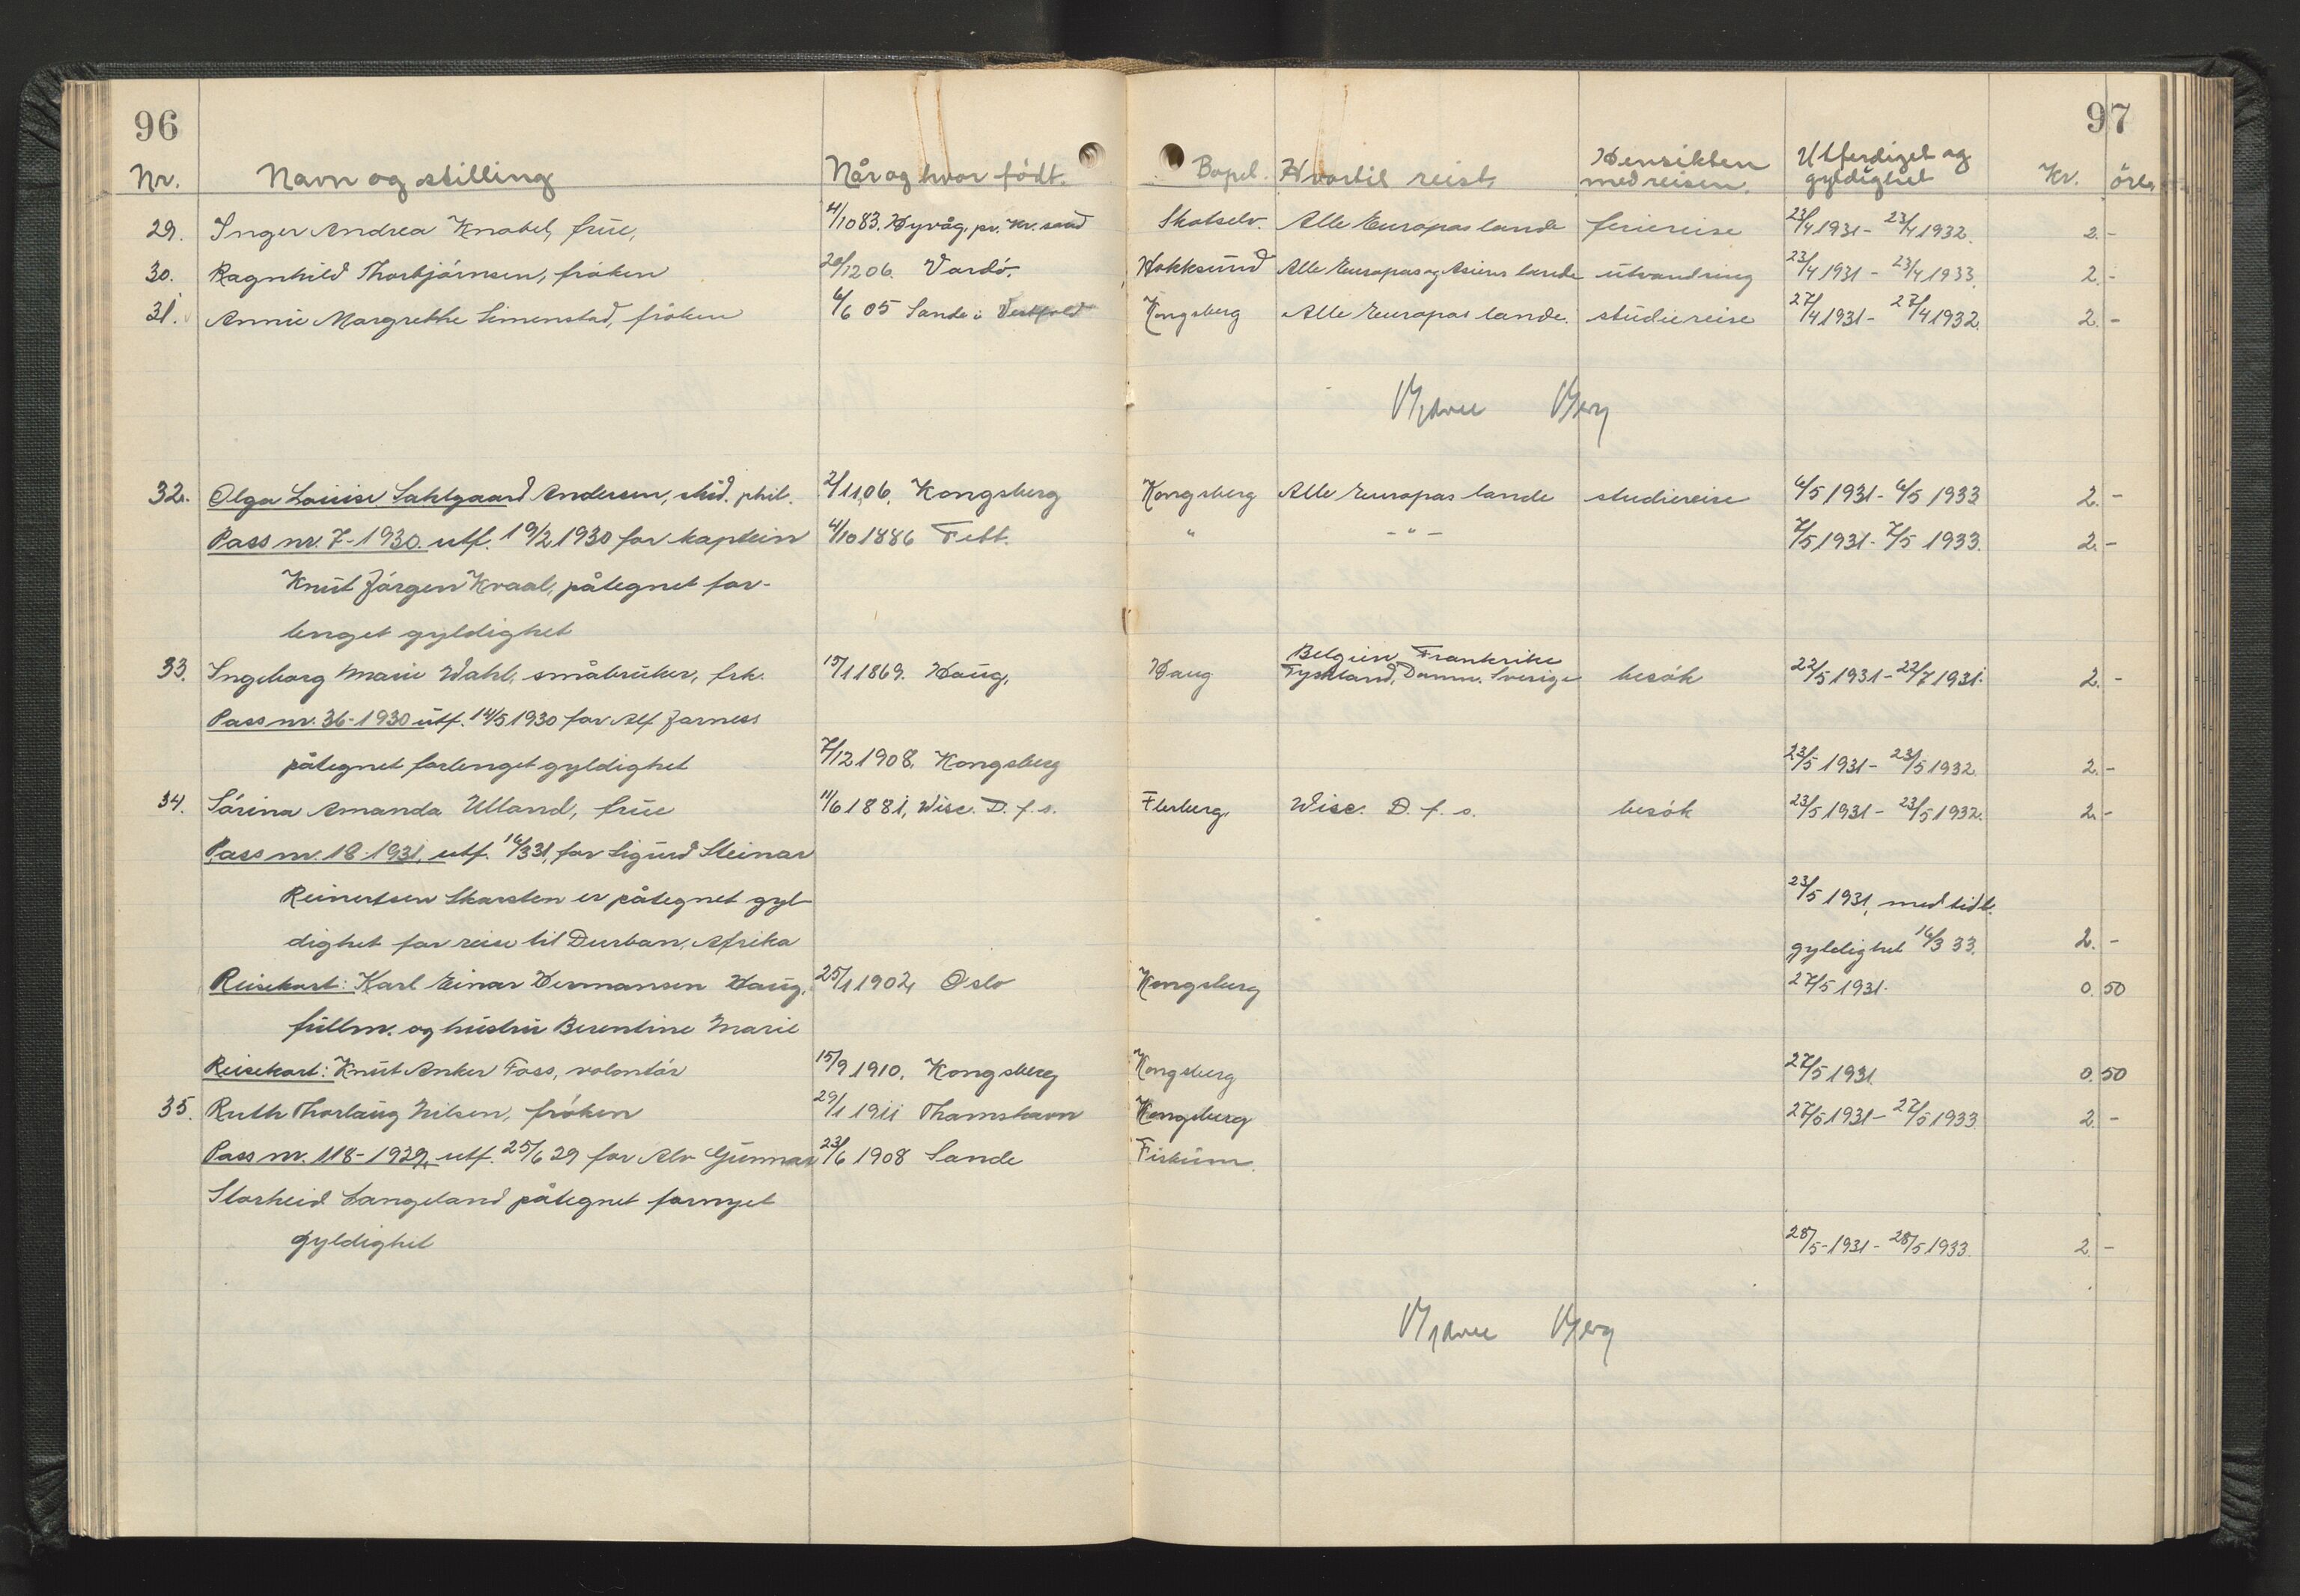 96
97
Nr. Navn og stilling Når og hvor född. Bopel. Hvortil reist, Hensikten med reisen. Utferdiget og gyldighet Kr. öre.
29. Inger Andrea Knobel, frue, 4/10 83. Høvåg, pr. Kr.sand Skotselv. Alle Europas lande feriereise 23/4 1931 - 23/4 1932. 2. -
30. Ragnhild Thorbjörnsen, fröken 20/12 06. Vardö. Hokksund Alle Europas og Asiens lande utvandring 23/4 1931 - 23/4 1933. 2. -
31. Annie Margrethe Simenstad, fröken 6/6 05 Sande i Vestfold Kongsberg Alle Europas lande. studiereise 27/4 1931 - 27/4 1932. 2. -
Berg
32. Olga Louise Sahlgaard Andersen, stud. phil. 2/11 06. Kongsberg Kongsberg Alle Europas lande studiereise 6/5 1931 - 6/5 1933 2. -
Pass nr. 7-1930. utf. 19/2 1930 for kaptein 4/10 1886 Fett. " - " - 7/5 1931 - 7/5 1933. 2. -
Knut Jörgen Kraal, påtegnet for-
lenget gyldighet
33. Ingeborg Marie Wahl, småbruker, frk. 15/1 1869. Haug, Haug Belgien, Frankrike Tyskland, Danm. Sverige besök 22/5 1931 - 22/7 1931. 2. -
Pass nr. 36-1930 utf. 14/5 1930 for Alf Jarness
påtegnet forlenget gyldighet 7/12 1908. Kongsberg 23/5 1931 - 23/5 1932. 2. -
34. Sörina Amanda Ulland, frue 11/6 1881, Wisc. D. f. s. Flesberg, Wisc. D. f. s. besök 23/5 1931 - 23/5 1932. 2. -
Pass nr. 18-1931, utf. 16/3 31, for Sigurd Steinar
Reinertsen Skarsten er påtegnet gyl-
23/5 1931, med tidl.
dighet for reise til Durban, Afrika gyldighet 16/3 33. 2. -
Reisekort: Karl Einar Hermansen Haug, 25/1 1902, Oslo Kongsberg 27/5 1931. 0. 50
fullm. og hustru Berentine Marie
Reisekort: Knut Anker Foss, volontör 15/9 1910. Kongsberg Kongsberg 27/5 1931. 0. 50
35. Ruth Thorlaug Nilsen, fröken 29/1 1911 Thamshavn Kongsberg 27/5 1931 - 27/5 1933. 2. -
Pass nr. 118-1929, utf. 25/6 29 for Alv Gunnar 23/6 1908 Sande Fiskum.
Storheid Langeland påtegnet fornyet
gyldighet 28/5-1931 - 28/5 1933. 2. -
Berg